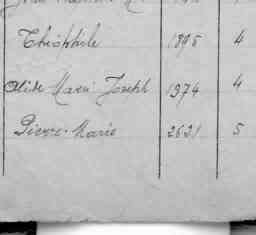 Théophile 1895 4
Marie Joseph 1974 4
Pierre-Marie 2631 5